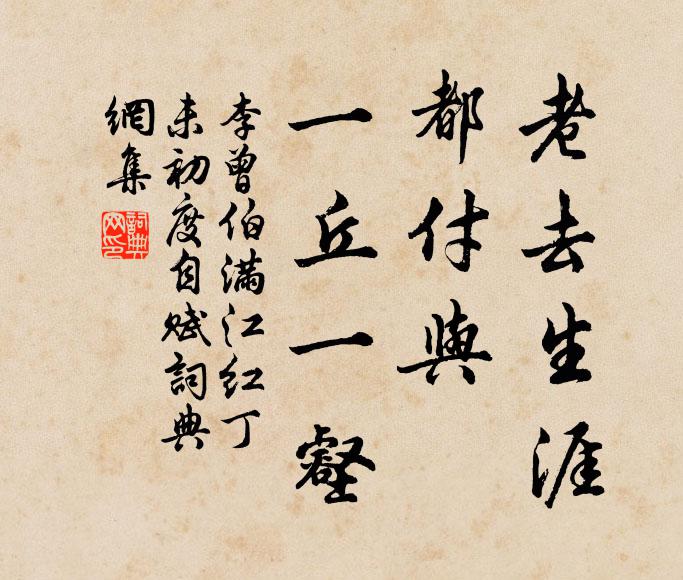 老去生涯
都付與
一丘一壑
李曾伯滿江紅丁
未初度自賦詞典
網集
詞典
网印